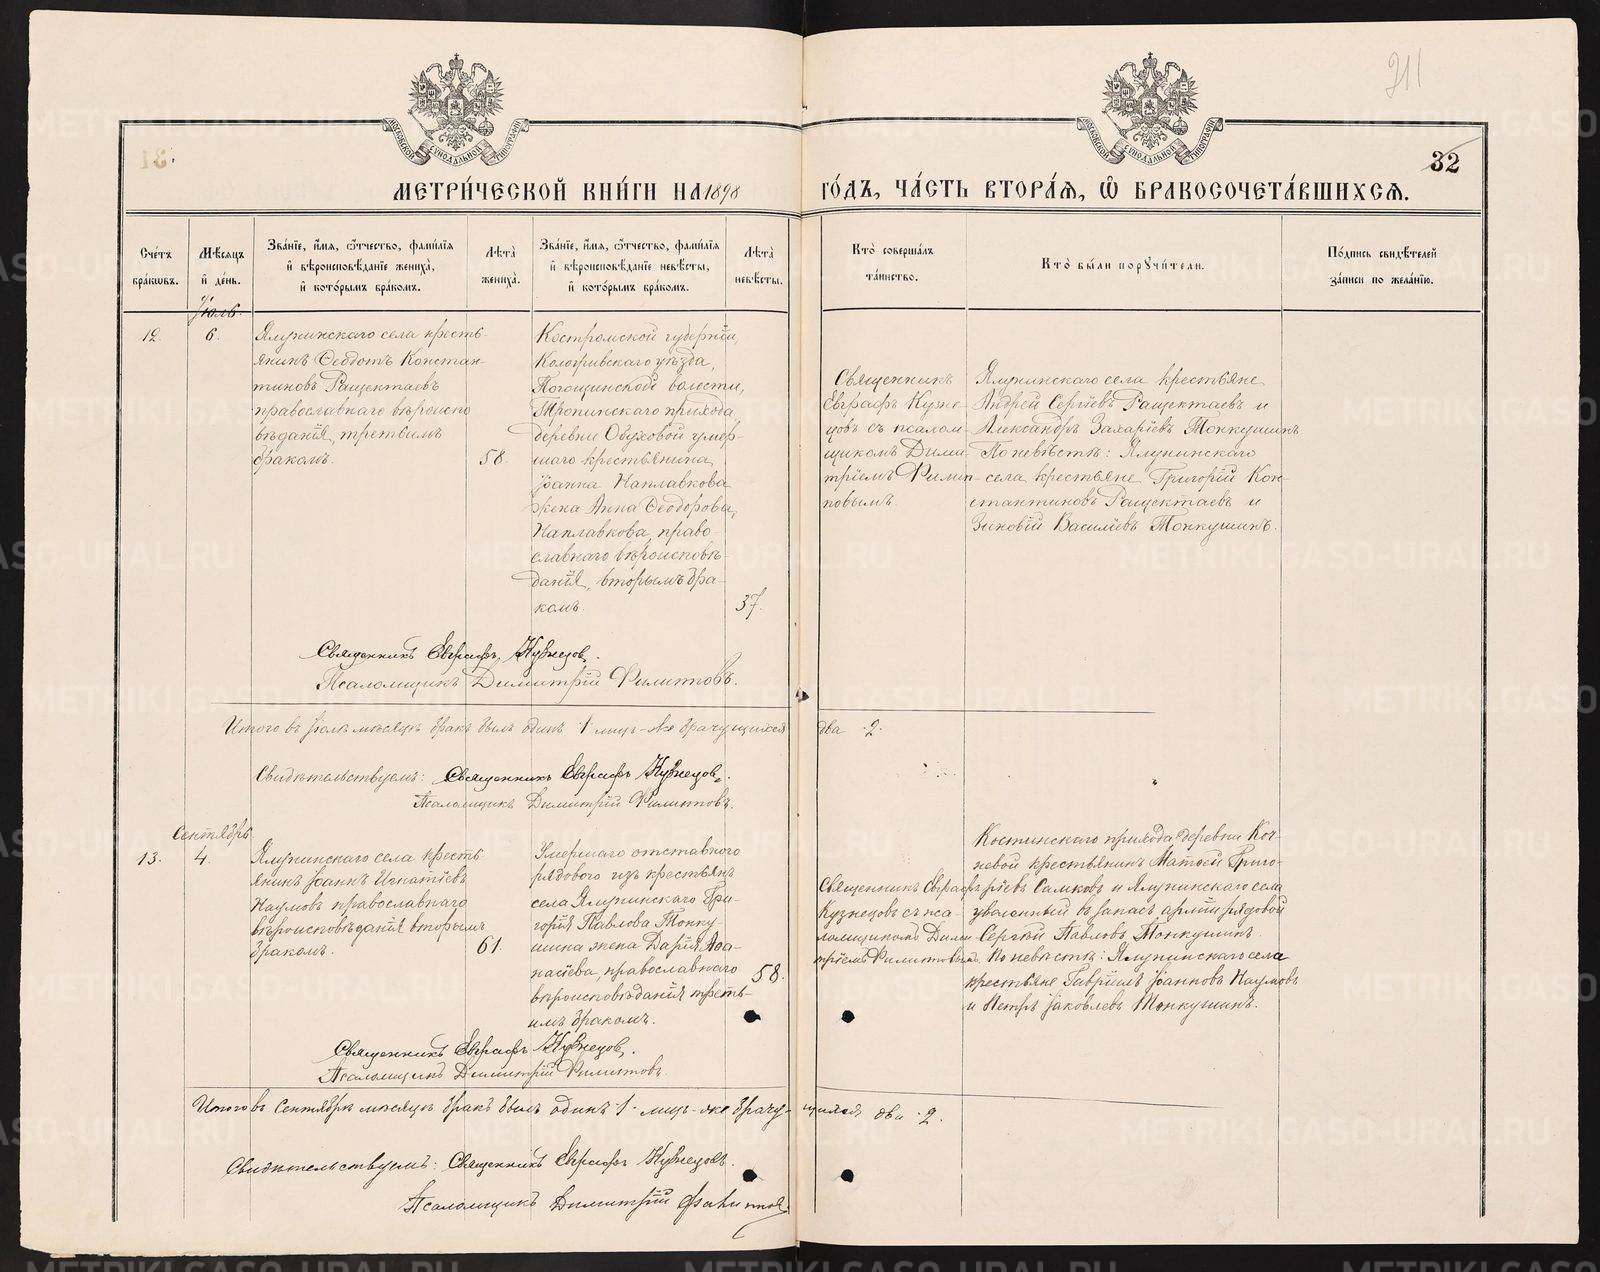 211
32
МЕТРИ́ЧЕСКОЙ КНИ́ГИ НА 1898 ГО́ДЪ, ЧА́СТЬ ВТОРА́Я, Ѡ БРАКОСОЧЕТА́ВШИХСЯ.
Сче́тъ бра́ковъ.
Мѣ́сяцъ и́ де́нь.
Зва́нїе, и́мя, ѻ́тчество, фами́лїя и́ вѣроисповѣ́данїе жениха̀, и́ кото́рымъ бра́комъ.
Лѣта̀ жениха̀.
Зва́нїе, и́мя, ѻ́тчество, фами́лїя и́ вѣроисповѣ́данїе невѣ́сты, и́ кото́рымъ бра́комъ.
Лѣта̀ невѣ́сты.
Кто̀ соверша́лъ та́инство.
Кто̀ бы́ли порꙋчи́тели.
По́дпись свидѣ́телей за́писи по жела́нїю.
Іюль.
12.
6.
Ялунинскаго села кресть-
янинъ Ѳеодотъ Констан-
тиновъ Ращектаевъ
православнаго вѣроиспо
вѣданія, третьимъ
бракомъ.
58.
Костромской губерніи,
Кологривскаго уѣзда,
волости,
прихода
деревни Обуховой умер-
шаго крестьянина
Іоанна Наплавкова
жена Анна Ѳеодорова
Наплавкова, право-
славнаго вѣроисповѣ-
данія, вторымъ бра-
комъ.
37.
Священникъ
Евграфъ Кузне-
цовъ съ псалом-
щикомъ Дими-
тріемъ Филип-
повымъ.
Ялунинскаго села крестьяне
Андрей Сергіевъ Ращектаевъ и
Александръ Захаріевъ Тонкушинъ
По невѣстѣ: Ялунинскаго
села крестьяне Григорій Кон-
стантиновъ Ращектаевъ и
Зиновій Василіевъ Тонкушинъ.
Священникъ Евграфъ Кузнецовъ.
Псаломщикъ Димитрій Филипповъ.
Итого въ Іюлѣ мѣсяцѣ бракъ былъ одинъ 1 лицъ-же брачущихся два 2.
Свидѣтельствуемъ: Священникъ Евграфъ Кузнецовъ.
Псаломщикъ Димитрій Филипповъ.
Сентябрь
13.
4.
Ялунинскаго села кресть-
янинъ Іоаннъ Игнатіевъ
Наумовъ православнаго
вѣроисповѣданія вторымъ
бракомъ.
61.
Умершаго отставнаго
рядового изъ крестьянъ
села Ялунинскаго Гри-
горія Павлова Тонку
шина жена Дарія Аѳа-
насіева, православнаго
вѣроисповѣданія треть-
имъ бракомъ.
58.
Священникъ Евграфъ
Кузнецовъ съ пса-
ломщикомъ Дими
тріемъ Филипповымъ
Костинскаго прихода деревни Коч-
невой крестьянинъ Матѳей Григо-
ріевъ Самковъ и Ялунинскаго села
уволенный въ запасъ арміи рядовой
Сергѣй Павловъ Тонкушинъ.
По невѣстѣ: Ялунинскаго села
крестьяне Гавріилъ Іоанновъ Наумовъ
и Петръ Іаковлевъ Тонкушинъ.
Священникъ Евграфъ Кузнецовъ.
Псаломщикъ Димитрій Филипповъ.
Итого въ Сентябрѣ мѣсяцѣ бракъ былъ одинъ 1. лицъ-же брачу-щихся два 2.
Свидѣтельствуемъ: Священникъ Евграфъ Кузнецовъ.
Псаломщикъ Димитрій Филипповъ
METRIKI.GASO-URAL.RU